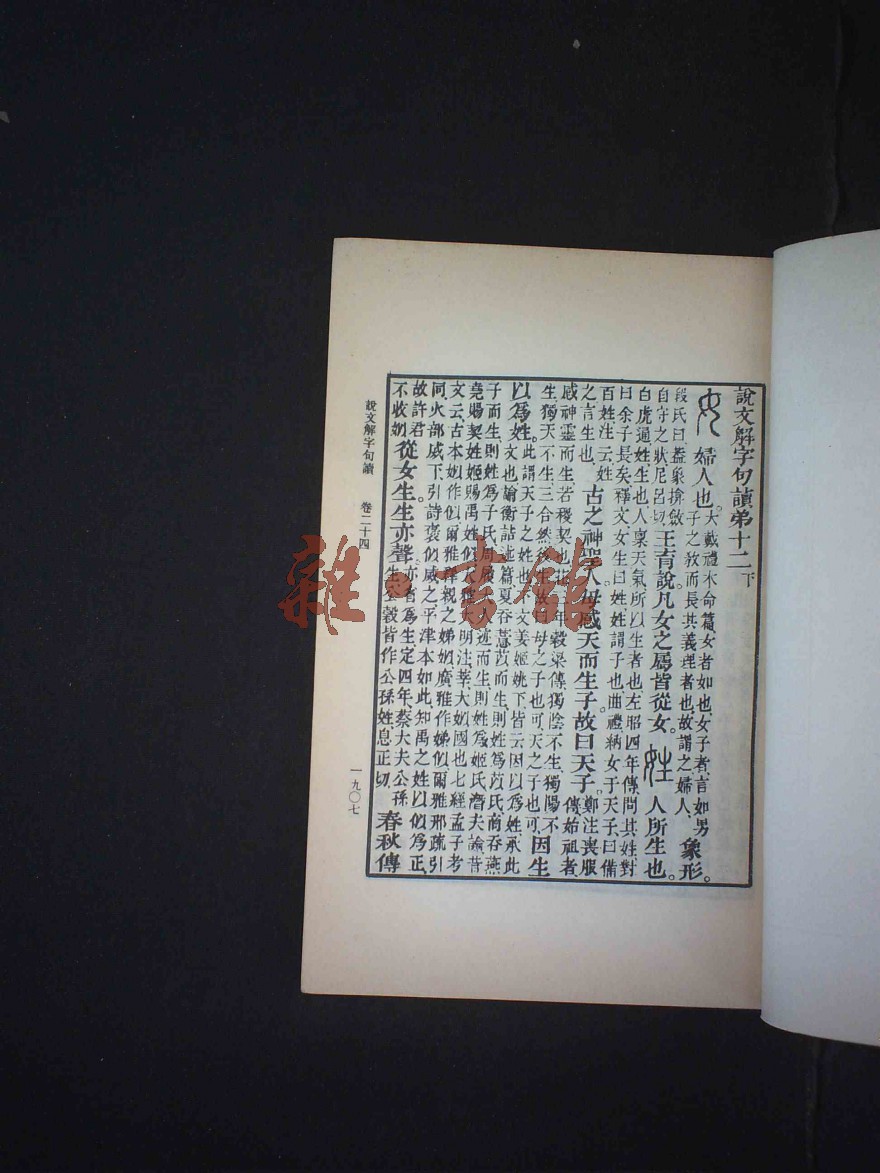 說文解字句讀弟十二下
女 婦人也。大戴禮本命篇女者如也女子者言如男
子之教而長其義理者也故謂之婦人 象形。
段氏曰蓋象揜斂
自守之狀尼呂切 王育說凡女之屬皆從女。 姓 人所生也。
白虎通姓生也人稟天氣所以生者也左昭四年傳問其姓對
曰余子長矣釋文女生曰姓姓謂子也曲禮納女于天子曰備
百姓注云姓
之言生也 古之神聖人母感天而生子故曰天子。鄭注喪服
傳始祖者
感神靈而生若稷契也 年穀梁傳獨陰不生獨陽不
生獨天不生三合然後生故曰母之子也可天之子也可 因生
以爲姓。此謂天子之姓也 文姜姬姚下皆云因以爲姓承此
文也論衡詰術篇夏吞薏苡而生則姓爲苡氏商吞燕
子而生則姓爲子氏周履大人迹而生則姓爲姬氏潛夫論昔
堯賜契姓姬賜禹姓姒 大明注莘大姒國也七經孟子考
文云古本姒作似爾雅釋親之娣姒廣雅作娣似爾雅邢疏引
同火部烕下引詩褒似烕之平津本如此知禹之姓以似爲正
故許君
不收姒 從女生生亦聲。亦者爲生定四年蔡大夫公孫
生公穀皆作公孫姓息正切 春秋傳
說文解字句讀 卷二十四 一九〇七
雜·書館